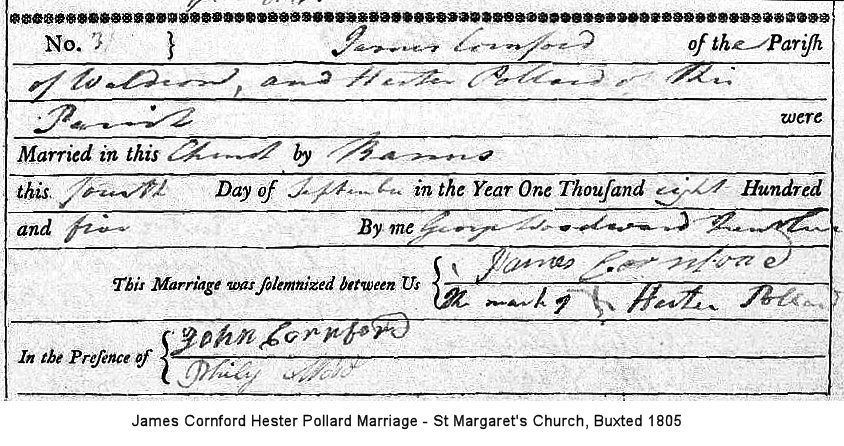 No. 31 } James Cornford of the Pariſh
of Waldron, and Hester Pollard of this
Parish were
Married in this Church by Banns
this fourth Day of September in the Year One Thouſand eight Hundred
and five By me George Woodward
This Marriage was ſolemnized between Us { James Cornford
The mark of Hester Pollard
In the Preſence of { John Cornford
Phily
James Cornford Hester Pollard Marriage - St Margaret's Church, Buxted 1805